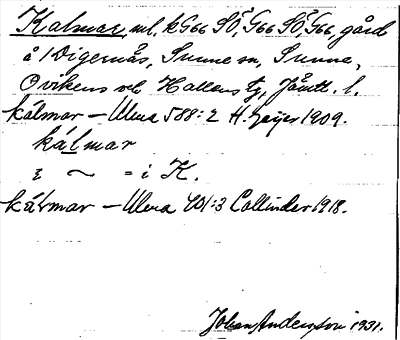 Kalmar, ml, kG66 SÖ, G66 SÖ, G66, gård
å 1 Digernäs, Sunne sn, Sunne,
Ovikens och Hallens tg, Jämtl. l.
kálmar – Ulma 588:2 H. Geijer 1909.
kálmar
i ~ = i K.
kálmar – Ulma 401:3 Collinder 1918.
Johan Andersson 1931.